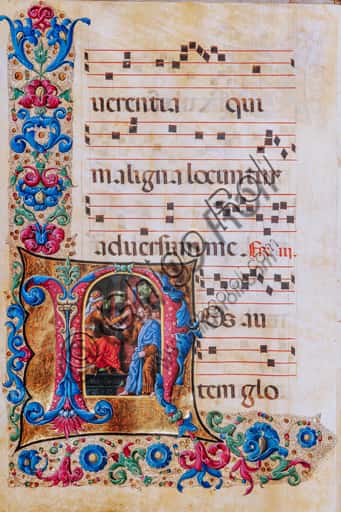 uerentia qui
maligna locuntur
aduersum me. Fe. iii.
NOS au
tem glo